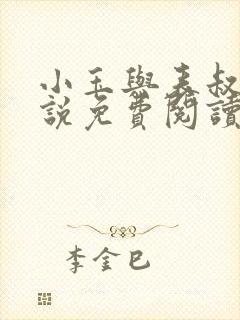 小玉與表叔
說免費閱讀
李金巳